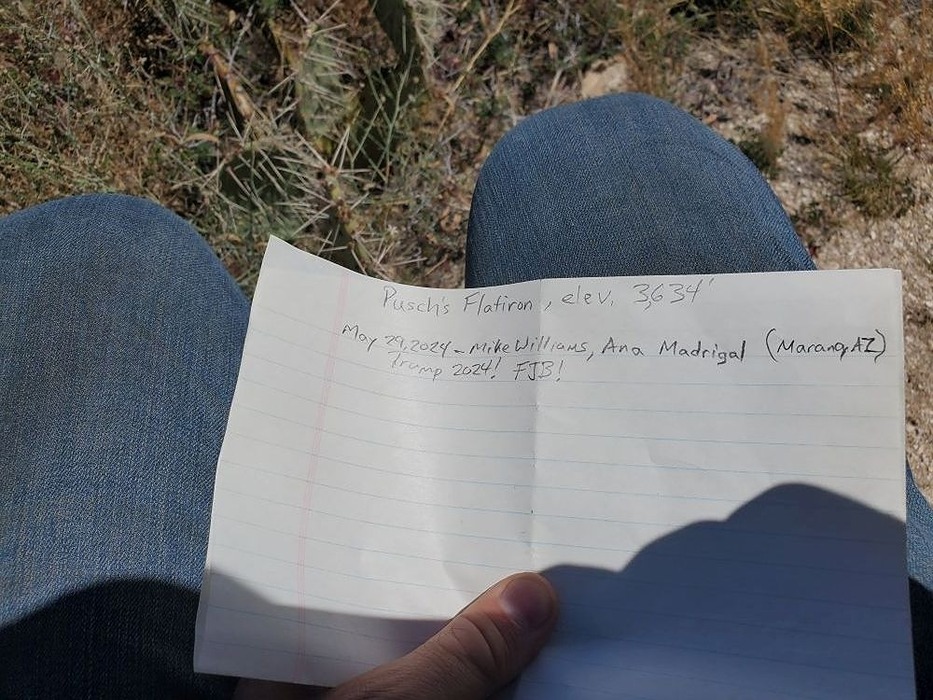 Pusch's Flatiron, elev. 3,634'
May 29, 2024 - Mike Williams, Ana Madrigal (Marana, AZ)
Trump 2024! FJB!